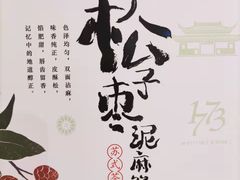 色泽均匀，双面沾麻，
味香纯正，皮酥松，
馅肥甜，唇齿留香，
记忆中的地道醇正。
松子枣泥麻饼
苏式茶
1773